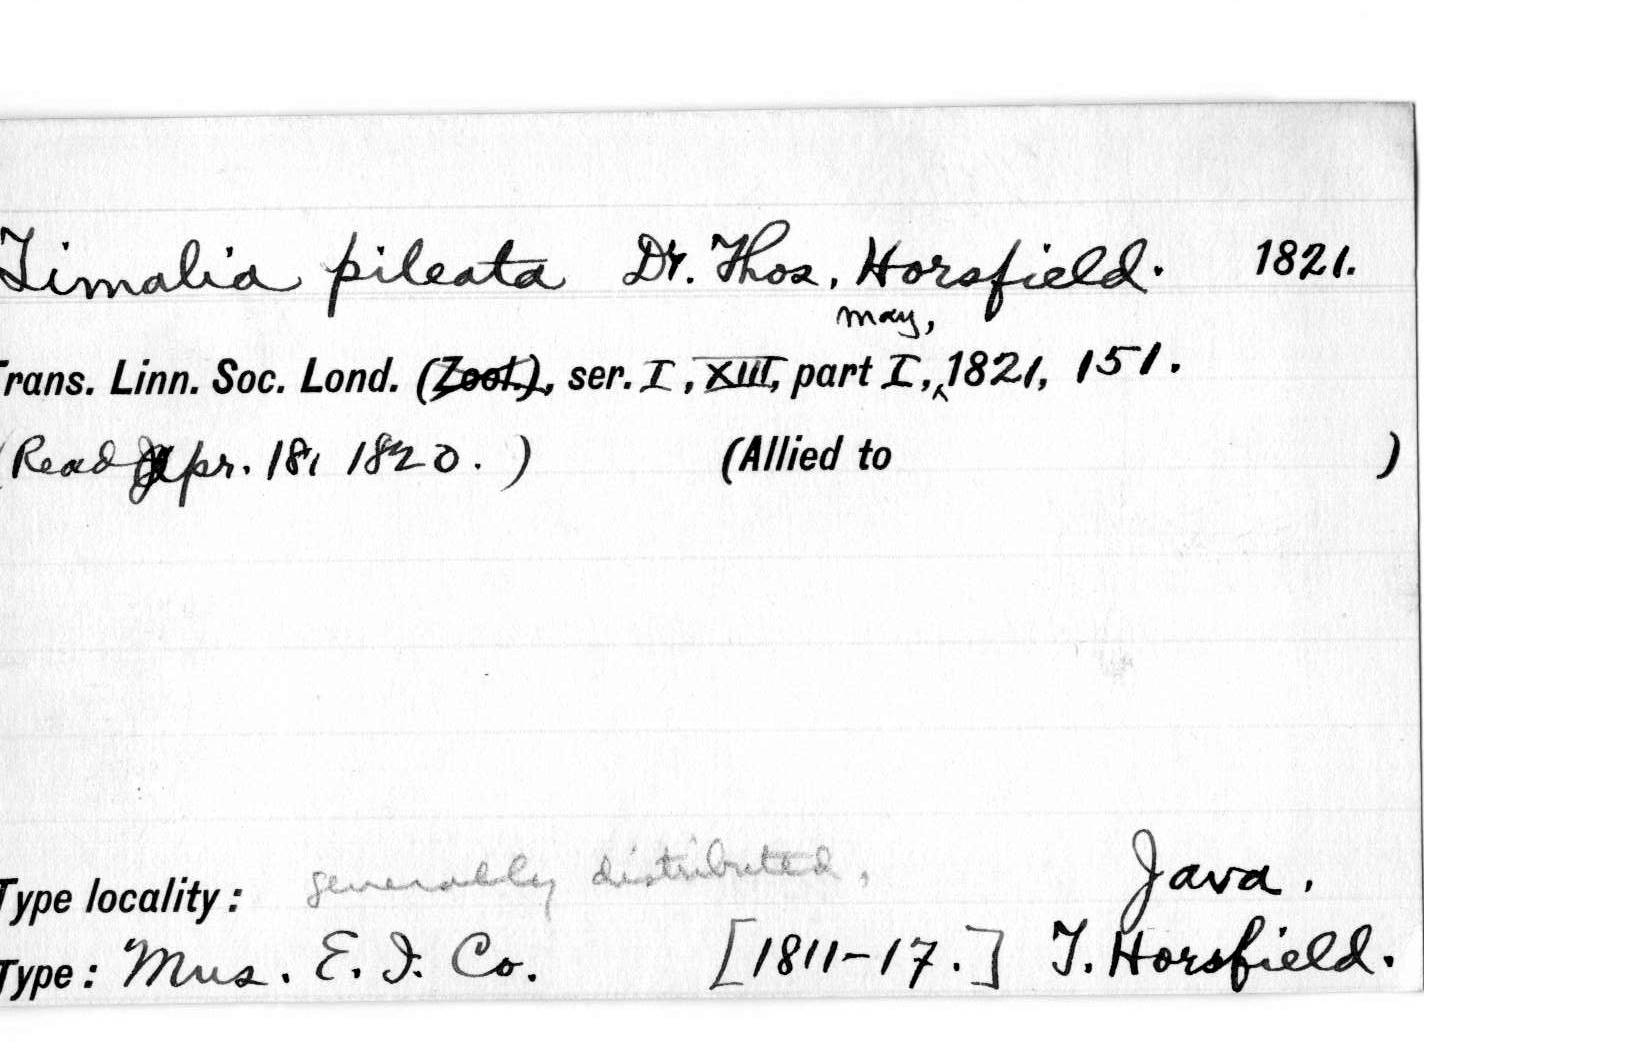 Timalia pileata Dr. Thos. Horsfield. 1821.
may,
Trans. Linn. Soc. Lond. (Zool.), ser. I, XIII, part I, ^ 1821, 151.
(Read Apr. 18, 1820. ) (Allied to )
Type locality: generally distributed, Java.
Type: Mus. E. I. Co. [1811-17.] T. Horsfield.